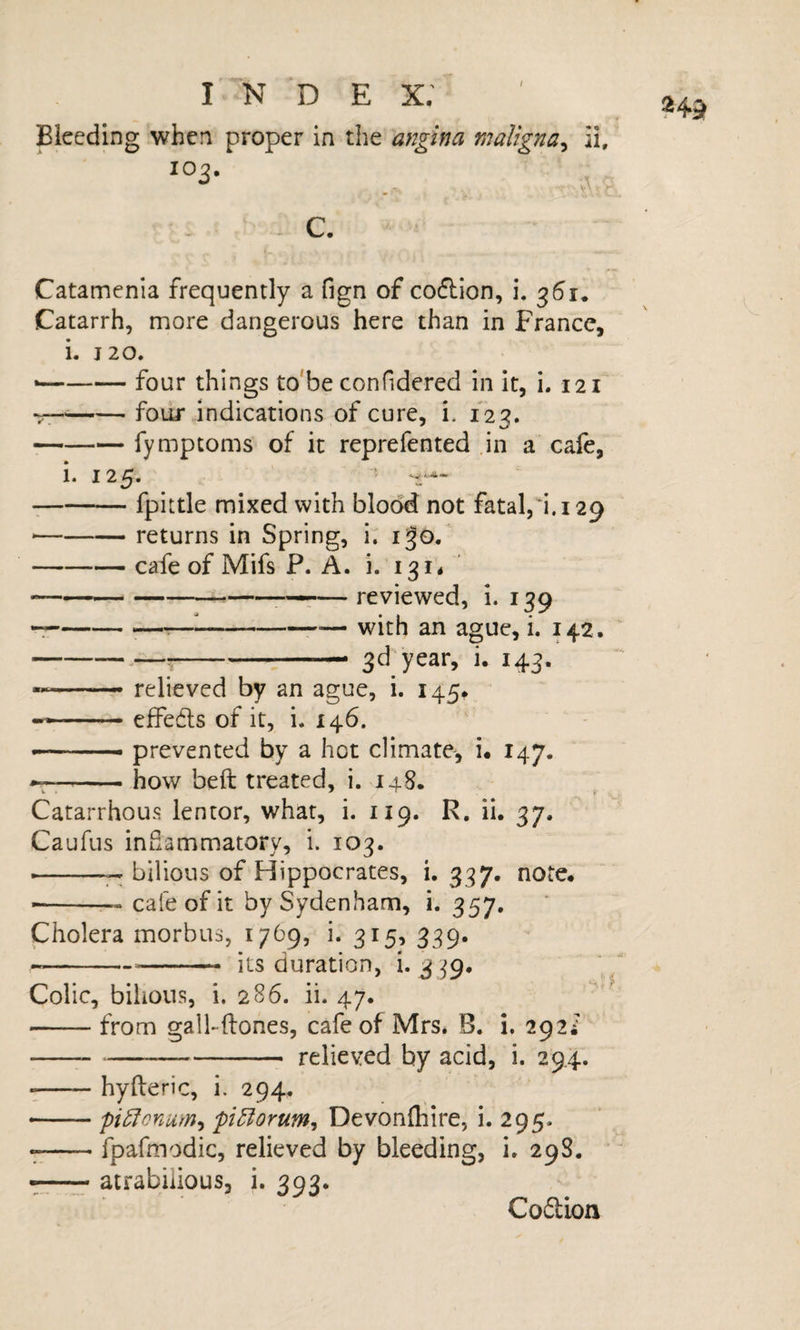 INDEX.
249
Bleeding when proper in the angina maligna, ii.
103.
C.
Catamenia frequently a ſign of coction, i. 361.
Catarrh, more dangerous here than in France,
i. 120.
——— four things to be conſidered in it, i. 121
——— four indications of cure, i. 123.
——— ſymptoms of it repreſented in a caſe,
i. 125.
——— ſpittle mixed with blood not fatal, i. 129
——— returns in Spring, i. 130.
——— caſe of Miſs P. A. i. 131.
——— ——————— reviewed, i. 139
——— ——————— with an ague, i. 142.
——— ——————— 3d year, i. 143.
——— relieved by an ague, i. 145.
——— effects of it, i. 146.
——— prevented by a hot climate, i. 147.
——— how beſt treated, i. 148.
Catarrhous lentor, what, i. 119. R. ii. 37.
Cauſus inflammatory, i. 103.
——— bilious of Hippocrates, i. 337. note.
——— caſe of it by Sydenham, i. 357.
Cholera morbus, 1769, i. 315, 339.
——————— its duration, i. 339.
Colic, bilious, i. 286. ii. 47.
—— from gall-ſtones, caſe of Mrs. B. i. 292.
—— ——————— relieved by acid, i. 294.
—— hyſteric, i. 294.
—— pictonum, pictorum, Devonſhire, i. 295.
—— ſpaſmodic, relieved by bleeding, i. 298.
—— atrabilious, i. 393.
Coction